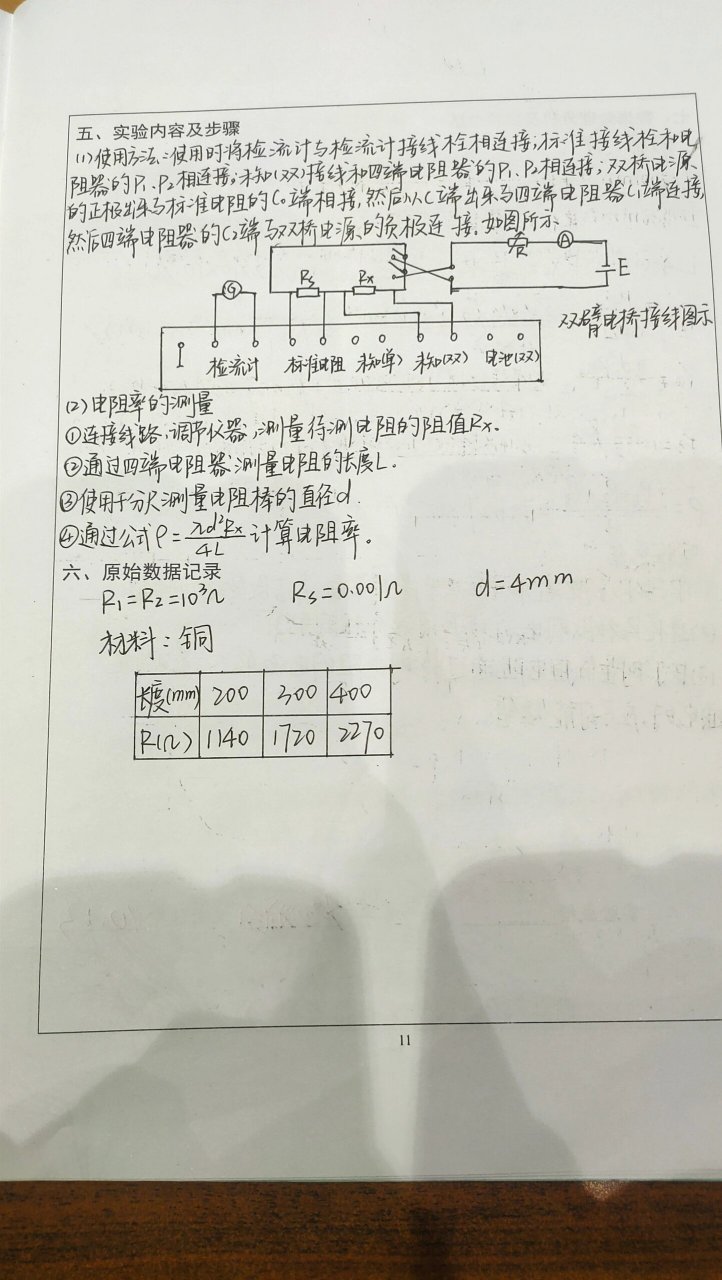 五、实验内容及步骤
(1)使用方法:使用时将检流计与检流计接线栓相连接;标准接线栓和电
阻器的P₁、P₂相连接;未知(双)接线和四端电阻器的P₁、P₂相连接;双桥电源
的正极出来与标准电阻的C₀端相接,然后从C端出来与四端电阻器C₁端连接,
然后四端电阻器的C₂端与双桥电源的负极连接,如图所示
R A
Rs Rx E
G
双臂电桥接线图示
检流计 标准电阻 未知(单) 未知(双) 电池(双)
(2)电阻率的测量
①连接线路,调节仪器,测量待测电阻的阻值Rx.
②通过四端电阻器测量电阻的长度L.
③使用千分尺测量电阻棒的直径d.
④通过公式ρ=πd²Rx/4L计算电阻率。
六、原始数据记录
R₁=R₂=10³Ω Rs=0.001Ω d=4mm
材料:铜
长度(mm) 200 300 400
R(Ω) 1140 1720 2270
11